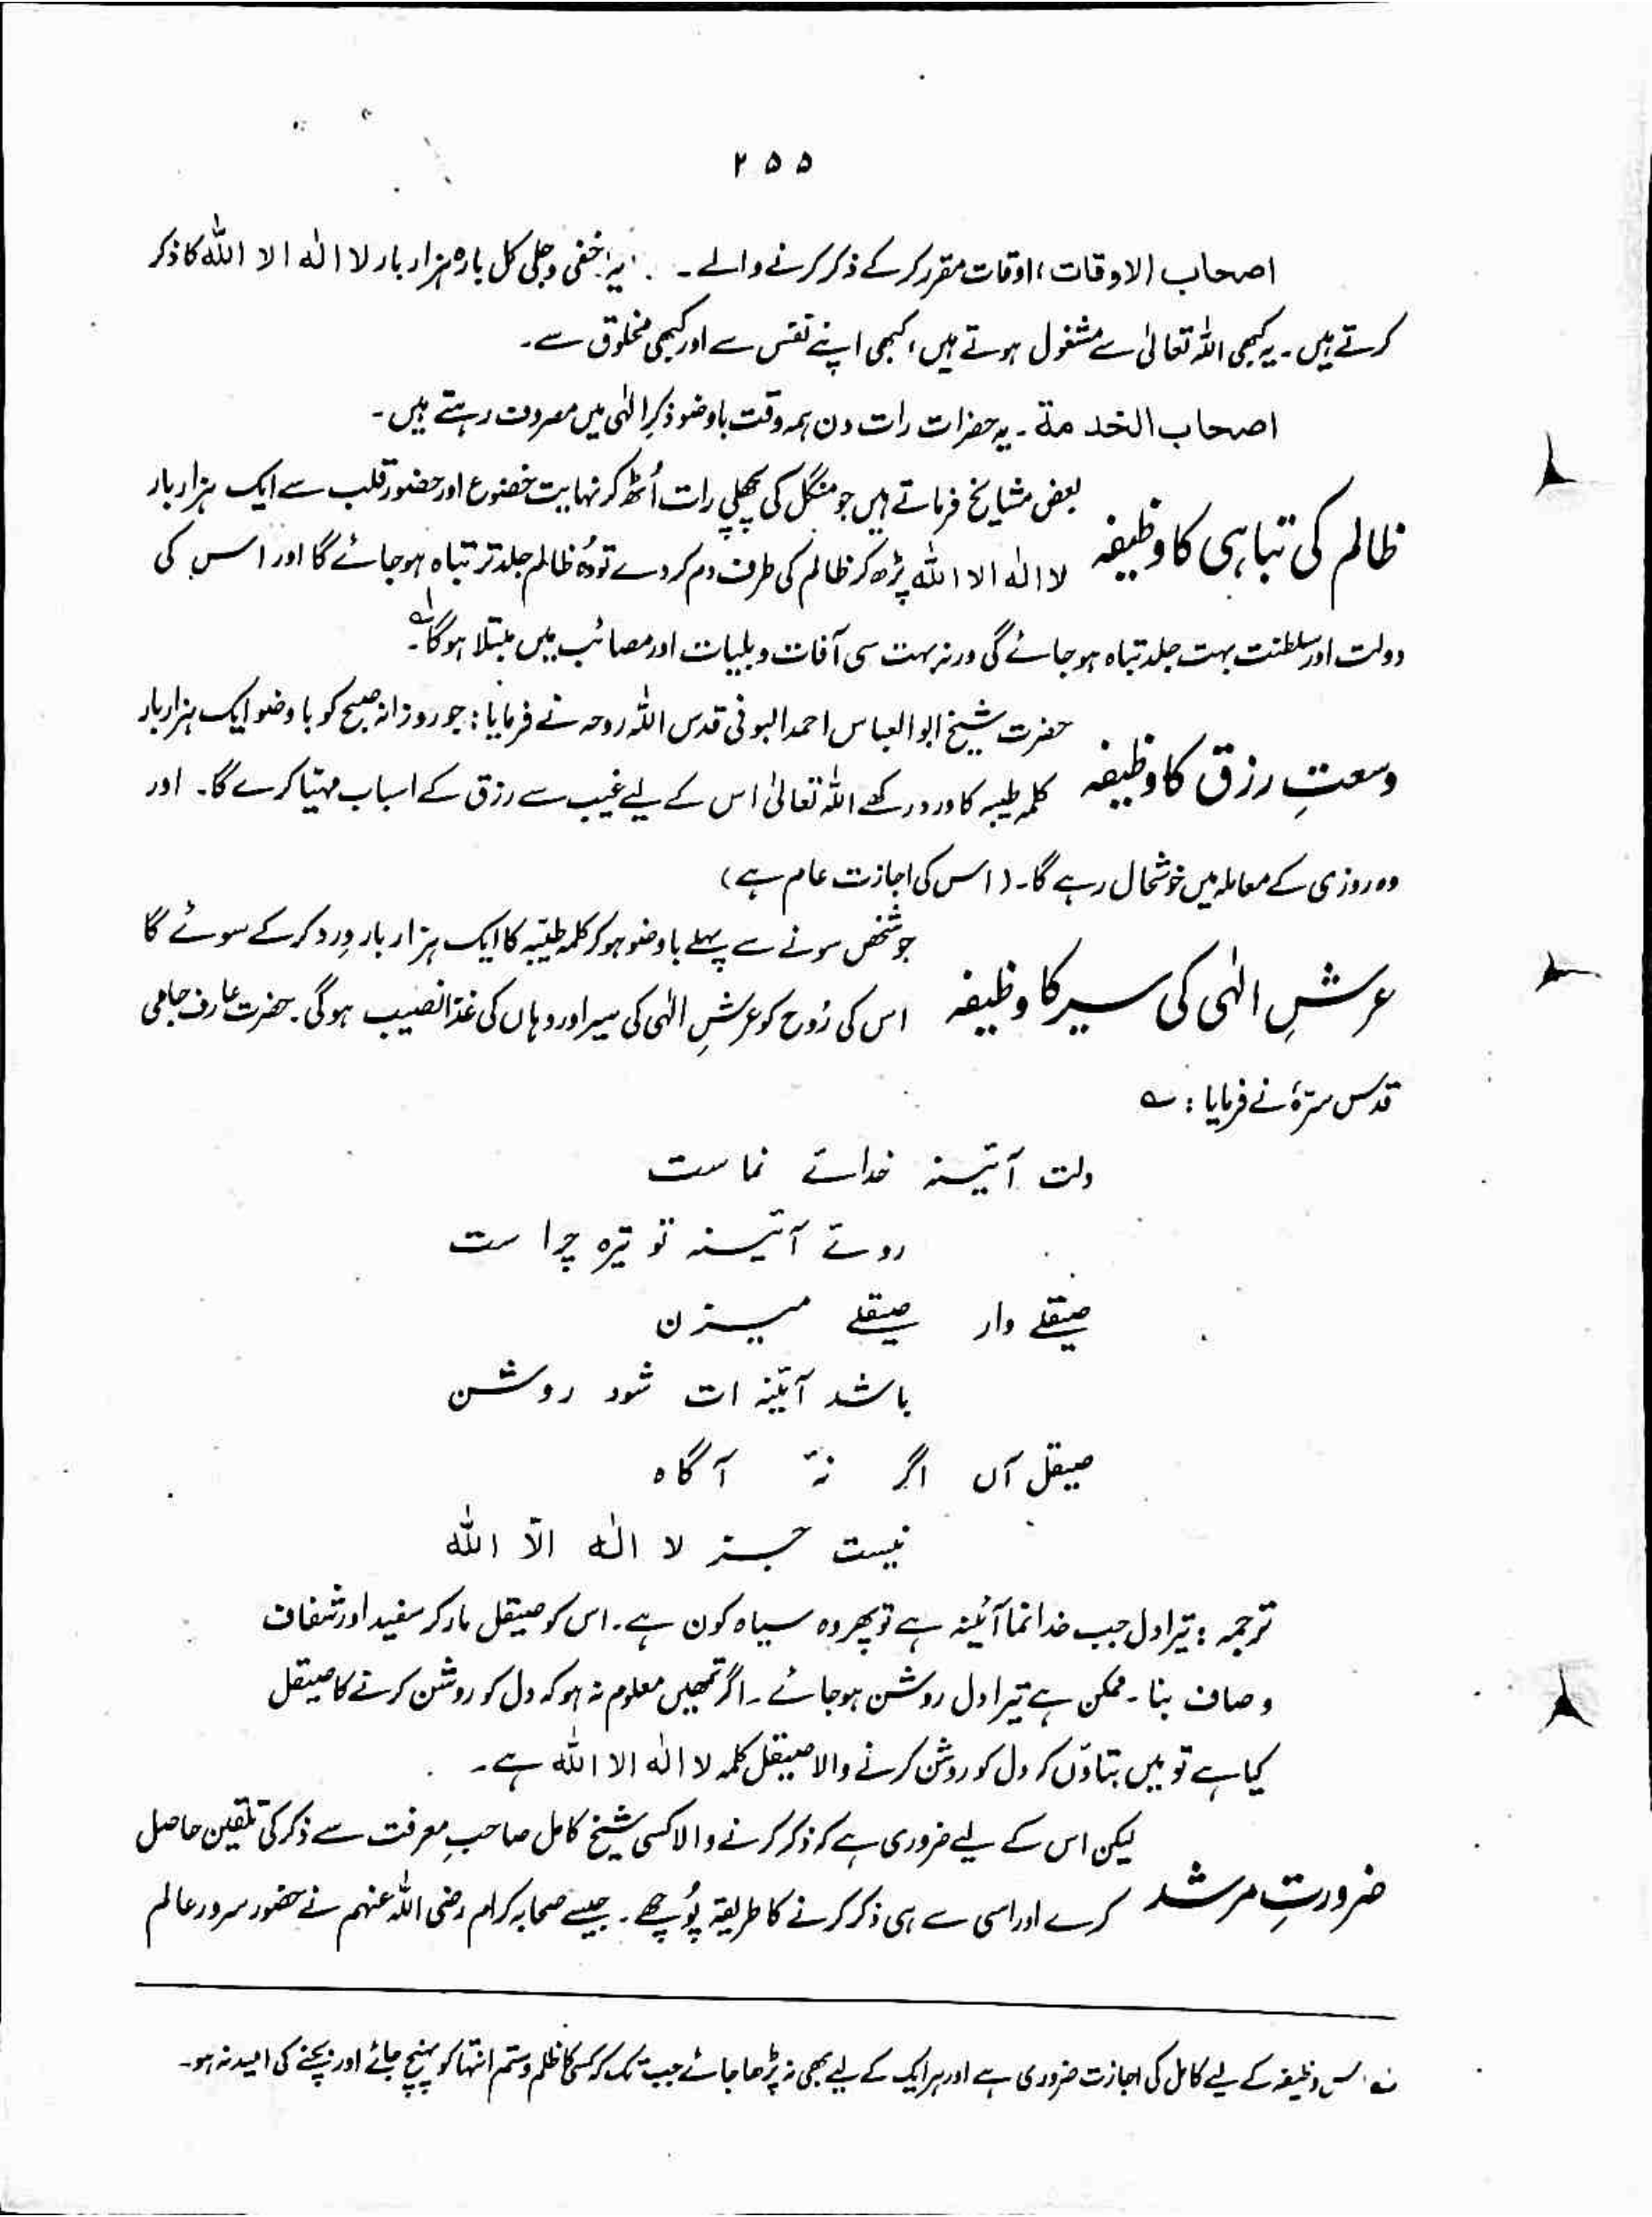 ۲۵۵
اصحاب الاوقات، اوقات مقرر کرکے ذکر کرنے والے۔ یہ خفی و جلی کل بارہ ہزار بار لا الٰہ الا اللہ کا ذکر
کرتے ہیں۔ یہ کبھی اللہ تعالیٰ سے مشغول ہوتے ہیں، کبھی اپنے نفس سے اور کبھی مخلوق سے۔
اصحاب الخدمة۔ یہ حضرات رات دن ہمہ وقت باوضو ذکرِ الٰہی میں مصروف رہتے ہیں۔
ظالم کی تباہی کا وظیفہ
بعض مشایخ فرماتے ہیں جو منگل کی پچھلی رات اُٹھ کر نہایت خضوع اور حضور قلب سے ایک ہزار بار
لا الٰہ الا اللہ پڑھ کر ظالم کی طرف دم کر دے تو وُہ ظالم جلد تر تباہ ہو جائے گا اور اس کی
دولت اور سلطنت بہت جلد تباہ ہو جائے گی ورنہ بہت سی آفات و بلیات اور مصائب میں مبتلا ہو گا۔؂۱
وسعتِ رزق کا وظیفہ
حضرت شیخ ابو العباس احمد البونی قدس اللہ روحہ نے فرمایا: جو روزانہ صبح کو با وضو ایک ہزار بار
کلمہ طیبہ کا ورد رکھے اللہ تعالیٰ اس کے لیے غیب سے رزق کے اسباب مہیّا کرے گا۔ اور
وہ روزی کے معاملہ میں خوشحال رہے گا۔ (اس کی اجازت عام ہے)
عرشِ الٰہی کی سیر کا وظیفہ
جو شخص سونے سے پہلے با وضو ہو کر کلمہ طیّبہ کا ایک ہزار بار وِرد کر کے سوئے گا
اس کی رُوح کو عرشِ الٰہی کی سیر اور وہاں کی غذا نصیب ہو گی۔ حضرت عارف جامی
قدس سرّہٗ نے فرمایا: ؎
دلت آئینہ خدائے نما ست
روئے آئینہ تو تیرہ چرا ست
صیقلے دار صیقلے میزن
باشد آئینہ ات شود روشن
صیقل آں اگر نۂ آگاہ
نیست جز لا الٰہ الّا اللہ
ترجمہ: تیرا دل جب خدا نما آئینہ ہے تو پھر وہ سیاہ کون ہے۔ اس کو صیقل مار کر سفید اور شفاف
و صاف بنا۔ ممکن ہے تیرا دل روشن ہو جائے۔ اگر تمھیں معلوم نہ ہو کہ دل کو روشن کرنے کا صیقل
کیا ہے تو میں بتاؤں کہ دل کو روشن کرنے والا صیقل کلمہ لا الٰہ الا اللہ ہے۔
ضرورتِ مرشد
لیکن اس کے لیے ضروری ہے کہ ذکر کرنے والا کسی شیخ کامل صاحبِ معرفت سے ذکر کی تلقین حاصل
کرے اور اسی سے ہی ذکر کرنے کا طریقہ پُوچھے۔ جیسے صحابہ کرام رضی اللہ عنہم نے حضور سرور عالم
اس وظیفہ کے لیے کامل کی اجازت ضروری ہے اور ہر ایک کے لیے بھی نہ پڑھا جائے جب تک کہ کسی کا ظلم و ستم انتہا کو پہنچ جائے اور بچنے کی امید نہ ہو۔